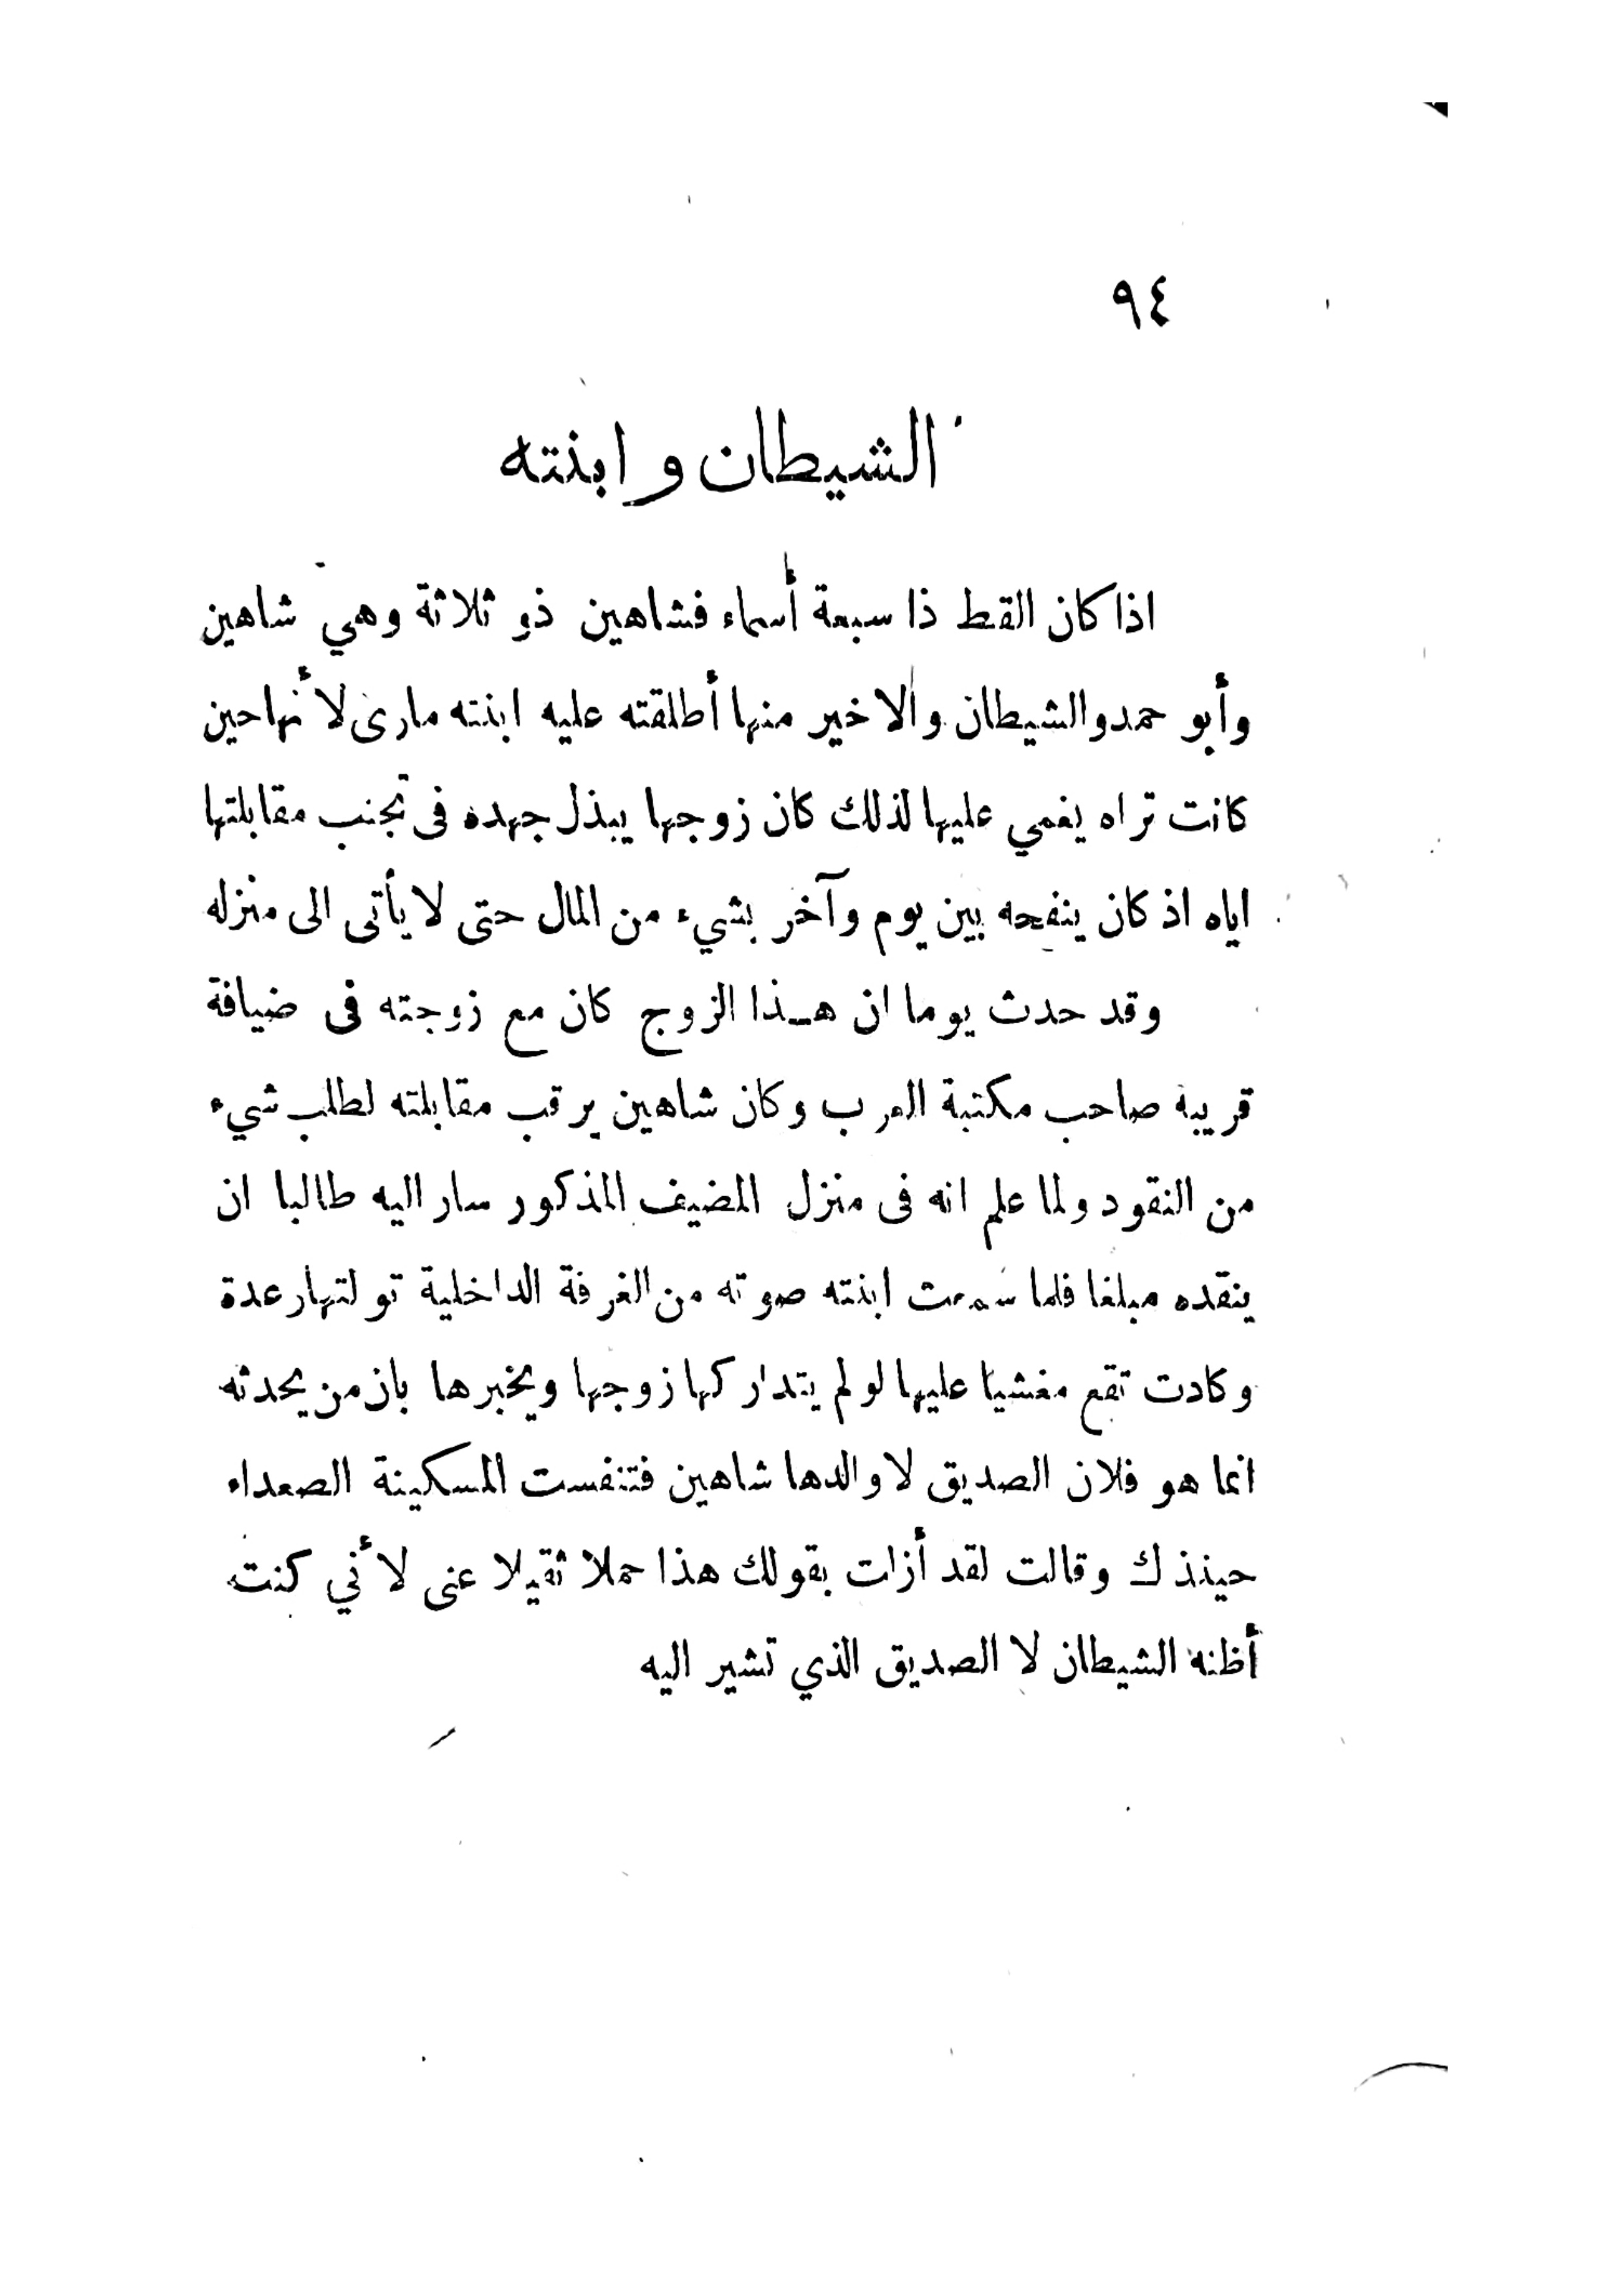 ٩٤
الشيطان وابنته
اذا كان القط ذا سبعة أسماء فشاهين ذو ثلاثة وهي شاهين
وأبو حمد والشيطان والاخير منها أطلقته عليه ابنته مارى لأنها حين
كانت تراه يغمي عليها لذلك كان زوجها يبذل جهده فى تجنب مقابلتها
اياه اذ كان ينفحه بين يوم وآخر بشيء من المال حتى لا يأتى الى منزله
وقد حدث يوما ان هذا الزوج كان مع زوجته فى ضيافة
قريبه صاحب مكتبة العرب وكان شاهين يرقب مقابلته لطلب شيء
من النقود ولما علم انه فى منزل المضيف المذكور سار اليه طالبا ان
ينقده مبلغا فلما سمعت ابنته صوته من الغرفة الداخلية تولتها رعدة
وكادت تقع مغشيا عليها لو لم يتداركها زوجها ويخبرها بان من يحدثه
انما هو فلان الصديق لا والدها شاهين فتنفست المسكينة الصعداء
حينذك وقالت لقد أزلت بقولك هذا حملا ثقيلا عنى لأني كنت
أظنه الشيطان لا الصديق الذي تشير اليه